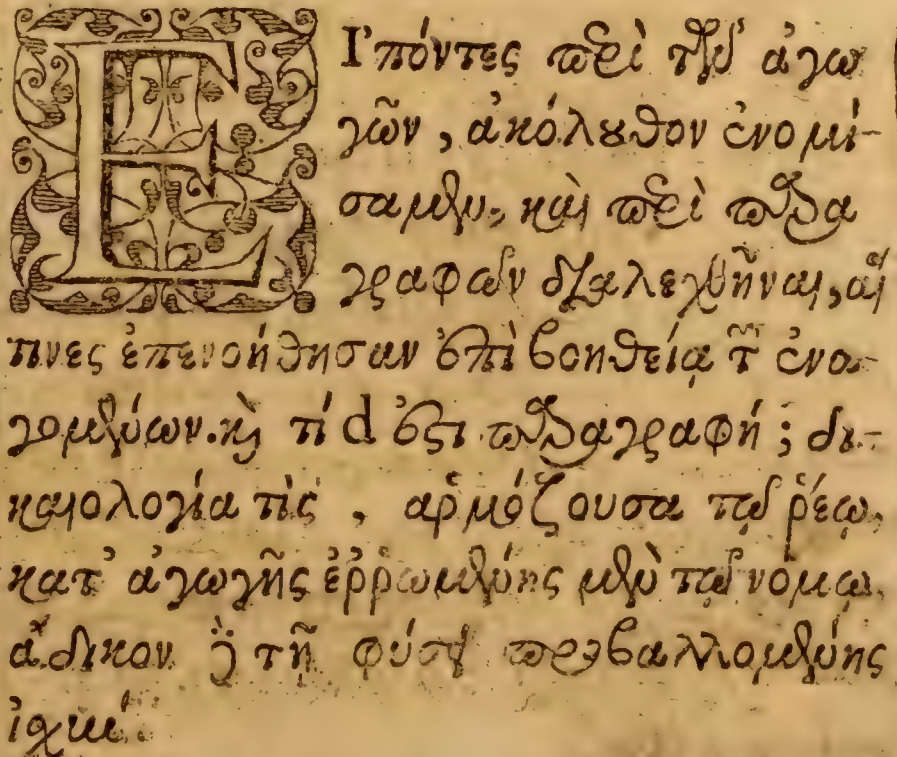 ΕΙ᾿πόντες περὶ τῶν ἀγω
γῶν, ἀκόλουθον ἐνομί-
σαμεν, καὶ περὶ παρα
γραφῶν διαλεχθῆναι, αἵ
τινες ἐπενοήθησαν ἐπὶ βοηθείᾳ τῶν ἐνα-
γομένων. καὶ τί ἐστι παραγραφή; δι-
καιολογία τὶς, αρμόζουσα τῷ ῥέῳ,
κατ' ἀγωγῆς ἐῤῥωμένης μὲν τῷ νόμῳ,
ἄδικον δὲ τῇ φύσει προβαλλομένης